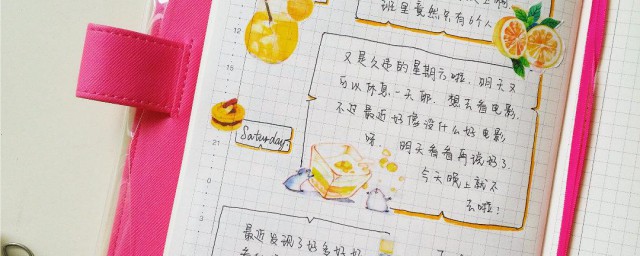 班里竟然只有6个人
12
15
18
21
0
3
又是久违的星期六啦. 明天又
可以休息一天耶. 想去看电影.
不过最近好像没什么好电影
呀 明天看看再说好了.
今天晚上就不
去啦!
Saturday.
最近发现了好多好好